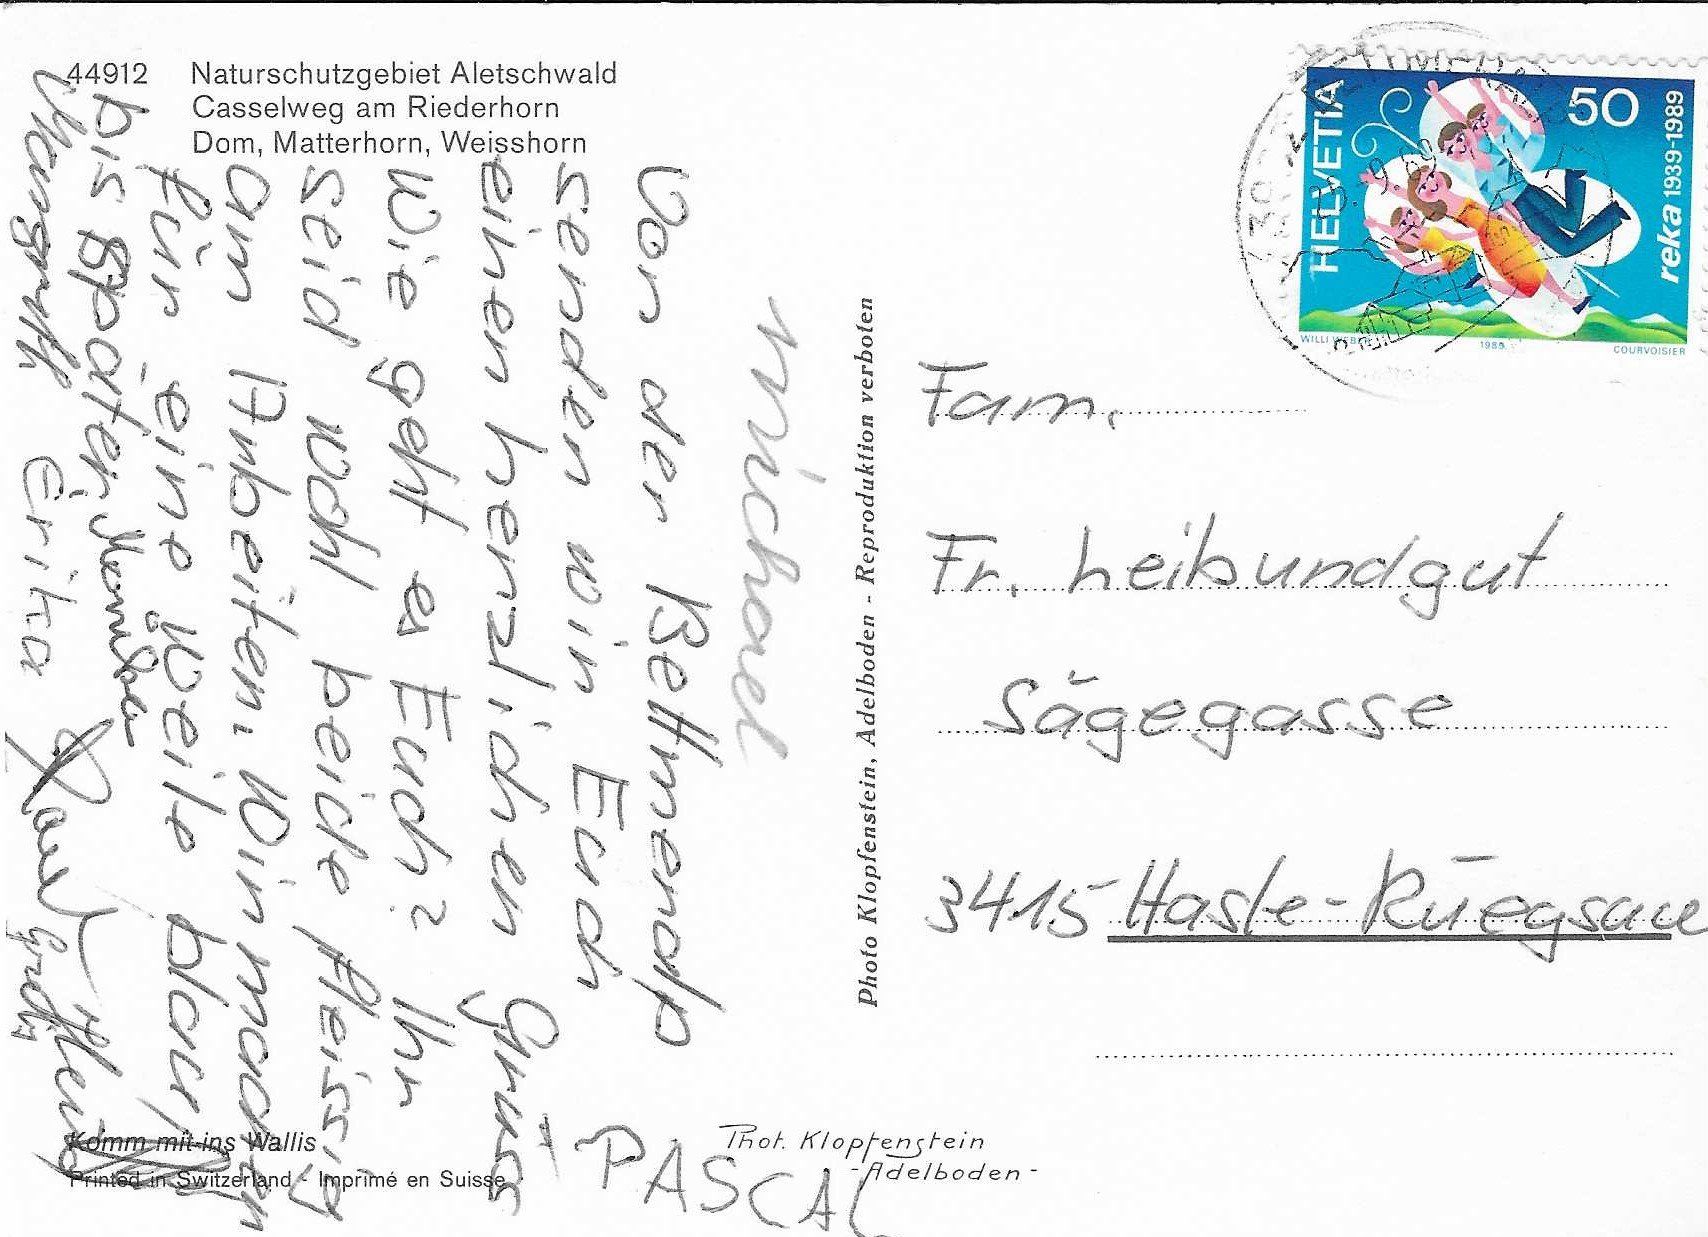 44912 Naturschutzgebiet Aletschwald
Casselweg am Riederhorn
Dom, Matterhorn, Weisshorn
Von der Bettmeralp
senden wir Euch
einen herzlichen Gruss
Wie geht es Euch? Ihr
seid wohl beide fleissig
am Arbeiten. Wir machen
für eine Weile blau,
bis später,
Margrith Erika
Heinz
Michael
PASCAL
Komm mit ins Wallis
Printed in Switzerland - Imprimé en Suisse
Photo Klopfenstein, Adelboden - Reproduktion verboten
Phot. Klopfenstein
- Adelboden -
HELVETIA
50
reka 1939-1989
WILLI WEBER 1989 COURVOISIER
Fam.
Fr. Leibundgut
Sägegasse
3415 Hasle-Rüegsau